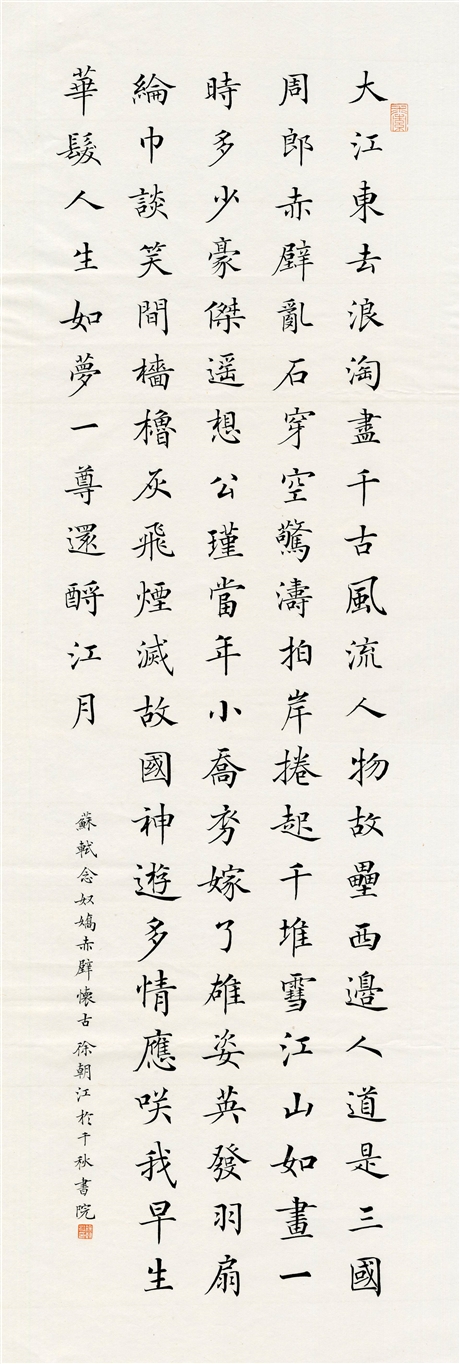 大江東去浪淘盡千古風流人物故壘西邊人道是三國
周郎赤壁亂石穿空驚濤拍岸捲起千堆雪江山如畫一
時多少豪傑遥想公瑾當年小喬初嫁了雄姿英發羽扇
綸巾談笑間檣櫓灰飛煙滅故國神遊多情應咲我早生
華髮人生如夢一尊還酹江月
蘇軾念奴嬌赤壁懷古 徐朝江於千秋書院